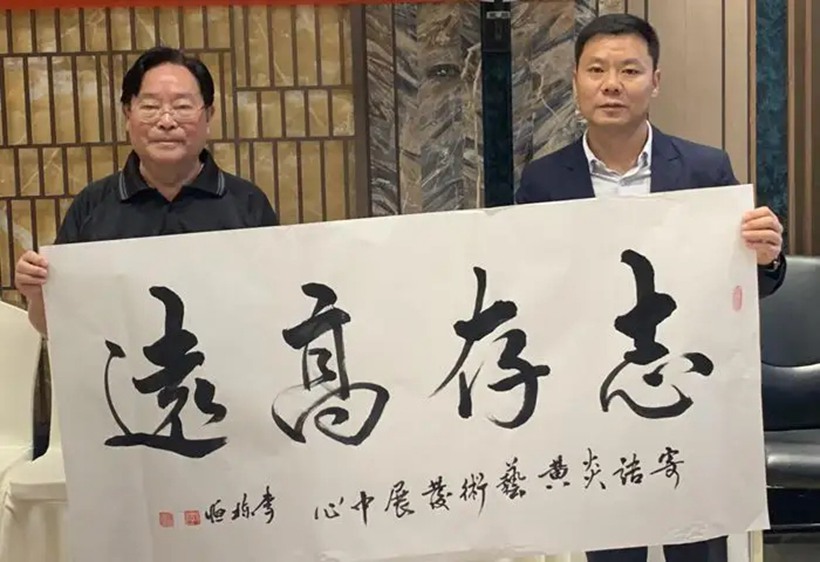 志存高遠
寄语炎黄藝術發展中心 李栋恒